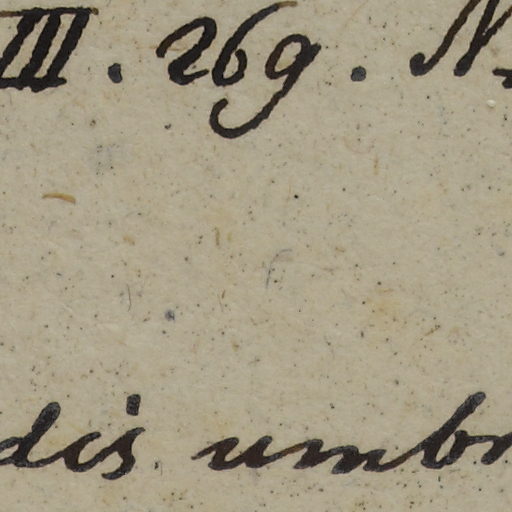 III. 269. N
dis umbr